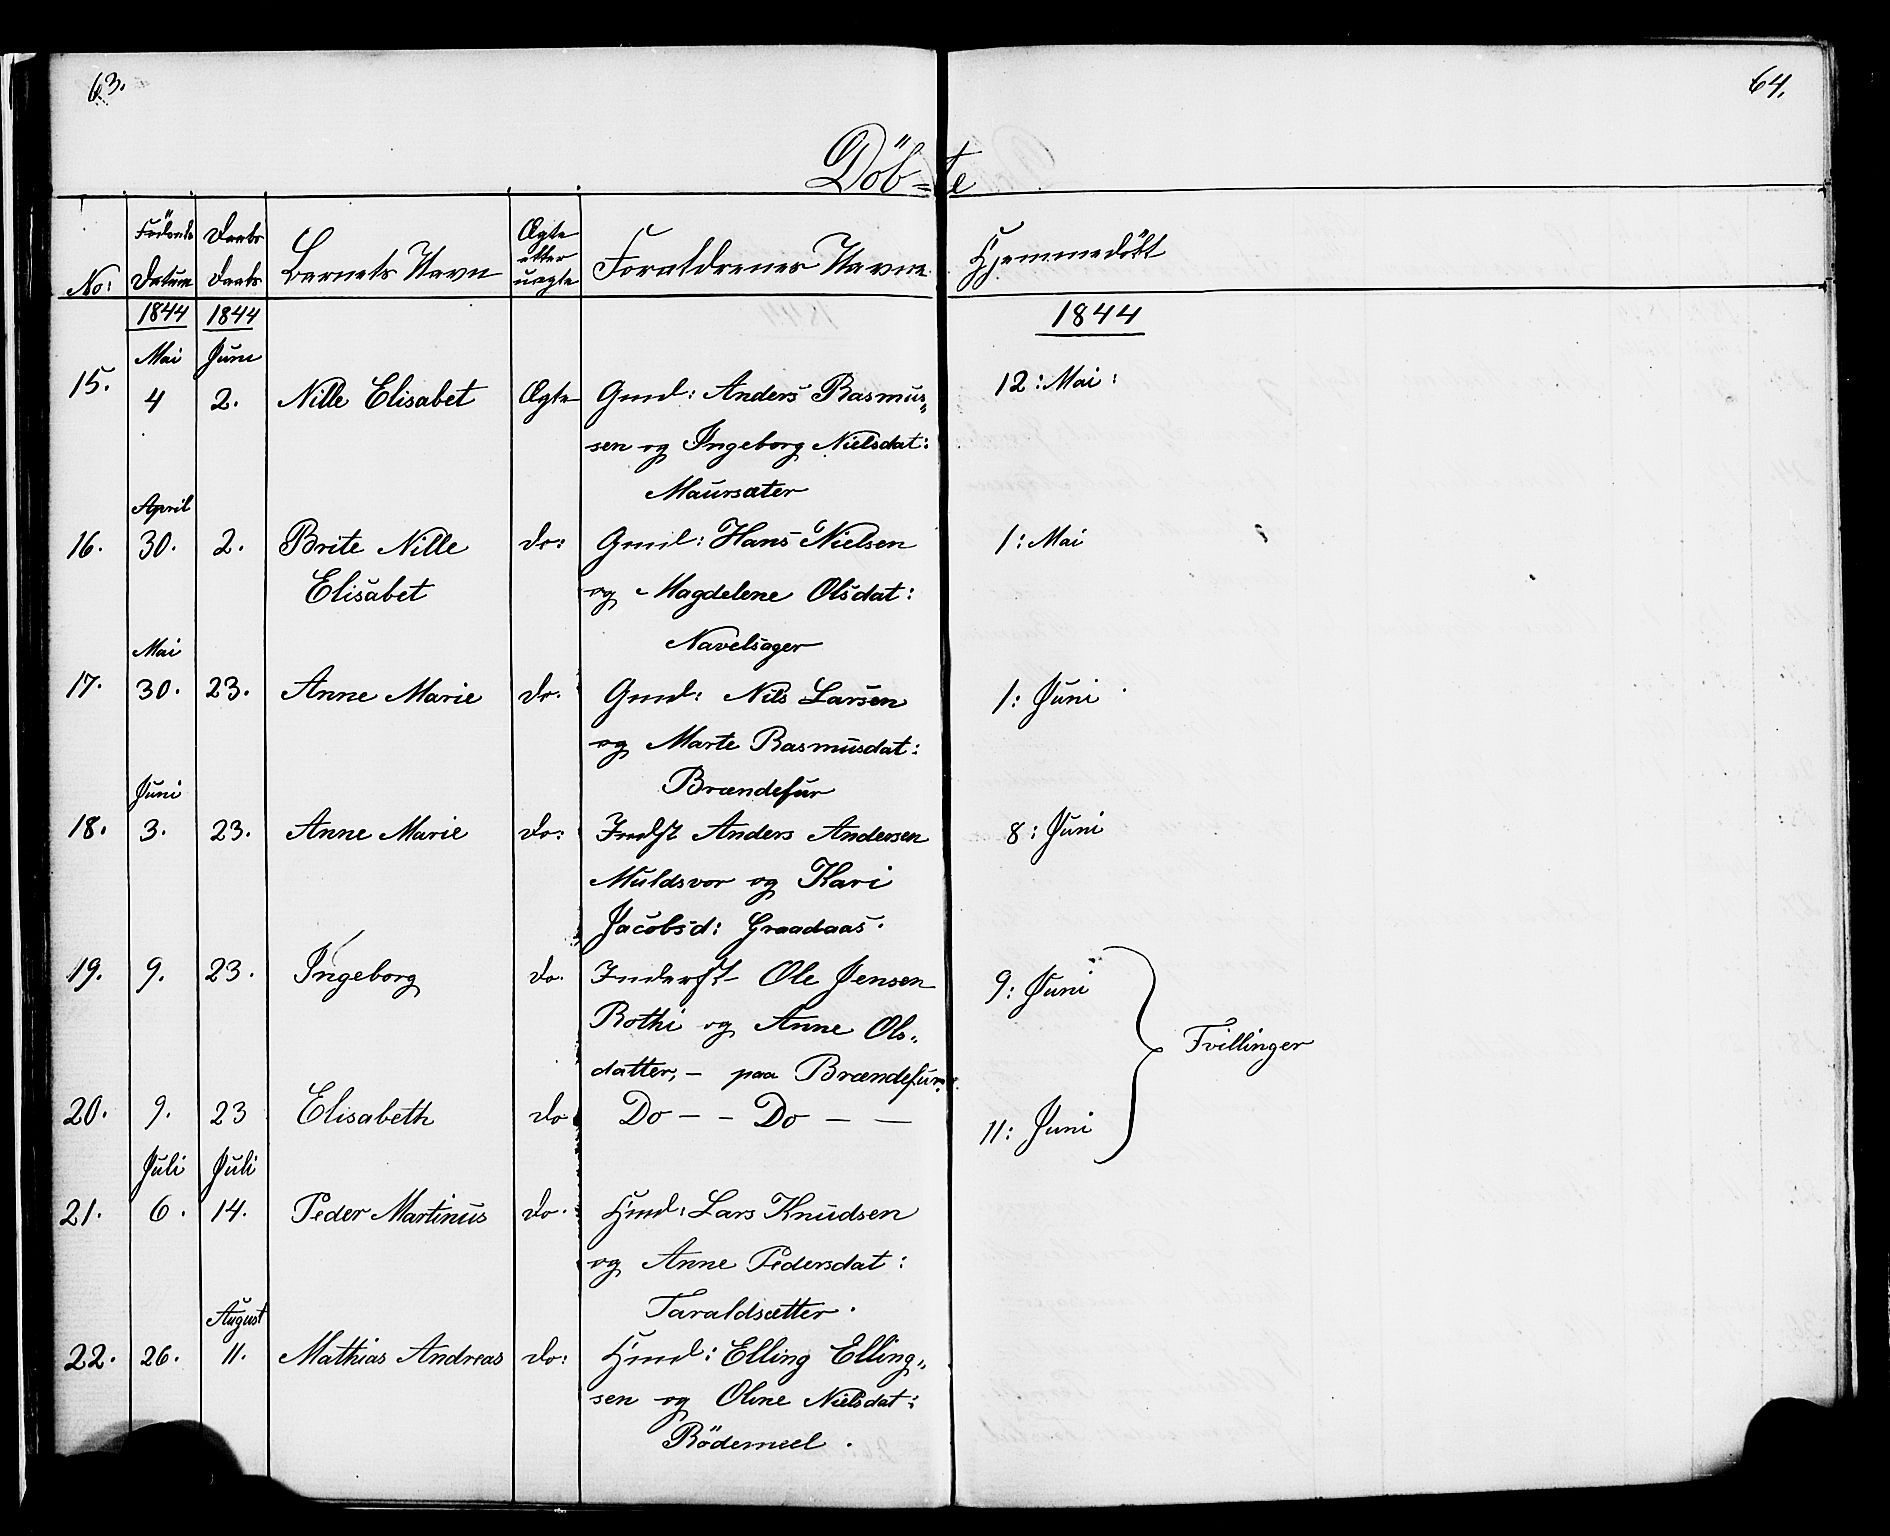 63.
64.
Döb-te
No:
Födsels
Datum
Daabs
Daabs
Barnets Navn
Ægte
eller
uægte
Forældrenes Navne
Hjemmedöbt
1844 1844
1844
Mai Juni
15. 4 2. Nille Elisabet Ægte Gmd: Anders Rasmus„ 12: Mai:
sen og Ingeborg Nielsdat:
Maursæter
April
16. 30. 2. Brite Nille do: Gmd: Hans Nielsen 1: Mai
Elisabet og Magdelene Olsdat:
Navelsager
Mai
17. 30. 23. Anne Marie do. Gmd: Nils Larsen 1: Juni
og Marte Rasmusdat:
Brændefur
Juni
18. 3. 23. Anne Marie do: Indst Anders Andersen 8: Juni
Muldsvor og Kari
Jacobsd: Graadaas.
19. 9. 23. Ingeborg do. Inderst Ole Jensen 9: Juni
Rothi og Anne Ols„
Tvillinger
datter, – paa Brændefur.
20. 9. 23 Elisabeth do Do – – Do – – 11: Juni
Juli Juli
21. 6. 14. Peder Martinus do. Hmd: Lars Knudsen
og Anne Pedersdat:
Taraldsætter.
August
22. 26. 11. Mathias Andreas do: Hmd: Elling Elling„
sen og Oline Nielsdat:
Rödemeel.